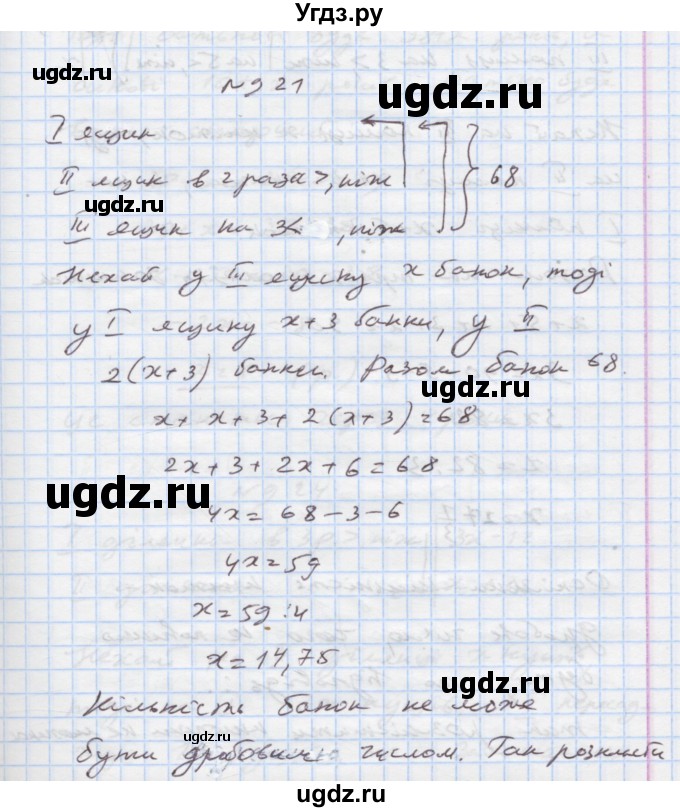 Угдз.ру
№921
I ящик
II ящик в 2 раза >, ніж
III ящик на 3<, ніж
68
Нехай у III ящику x банок, тоді
у I ящику x+3 банки, у II
2(x+3) банки. Разом банок 68.
x+x+3+2(x+3)=68
2x+3+2x+6=68
4x=68-3-6
4x=59
x=59:4
x=14,75
Кількість банок не може
бути дробовим числом. Так розкласти
ugdz.ru
ugdz.ru
ugdz.ru
ugdz.ru
ugdz.ru
ugdz.ru
ugdz.ru